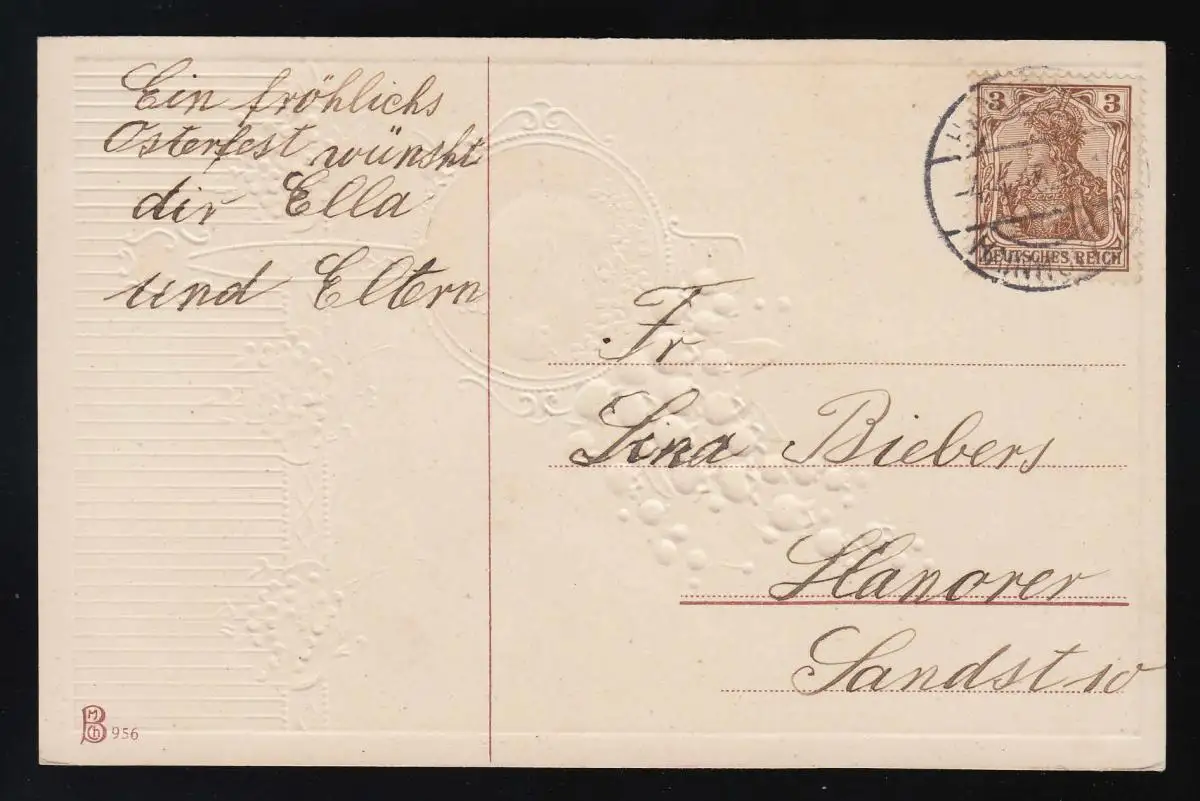 Ein fröhlichs
Osterfest wünsht
dir Ella
und Eltern
3 3
DEUTSCHES REICH
Fr
Lina Biebers
Hanover
Sandst 10
M
B
Ch 956